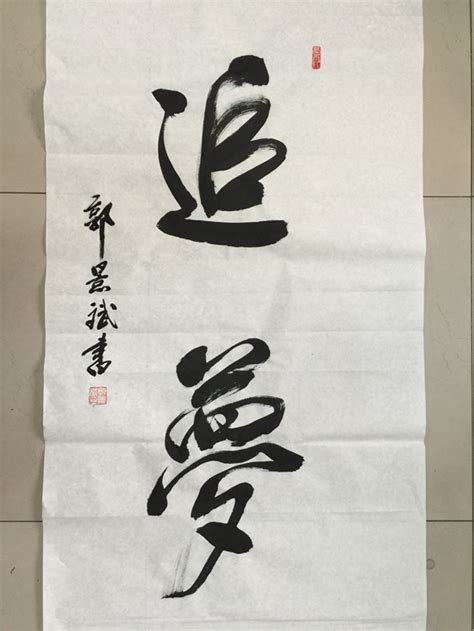 追夢
郭景斌書